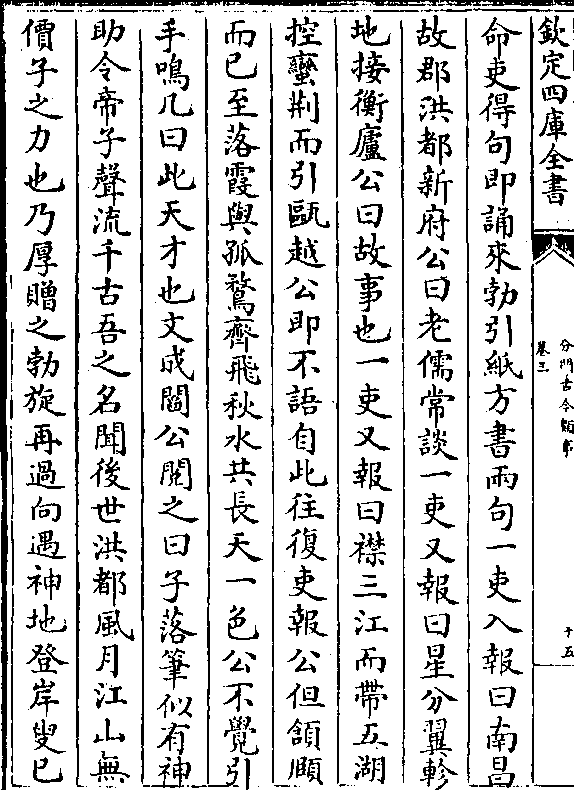 欽定四庫全書
分門古今類事
卷三
十五
命吏得句即誦來勃引紙方書兩句一吏入報曰南昌
故郡洪都新府公曰老儒常談一吏又報曰星分翼軫
地接衡廬公曰故事也一吏又報曰襟三江而帶五湖
控蠻荆而引甌越公即不語自此往復吏報公但頷頤
而已至落霞與孤鶩齊飛秋水共長天一色公不覺引
手鳴几曰此天才也文成閻公閱之曰子落筆似有神
助令帝子聲流千古吾之名聞後世洪都風月江山無
價子之力也乃厚贈之勃旋再過向遇神地登岸叟已